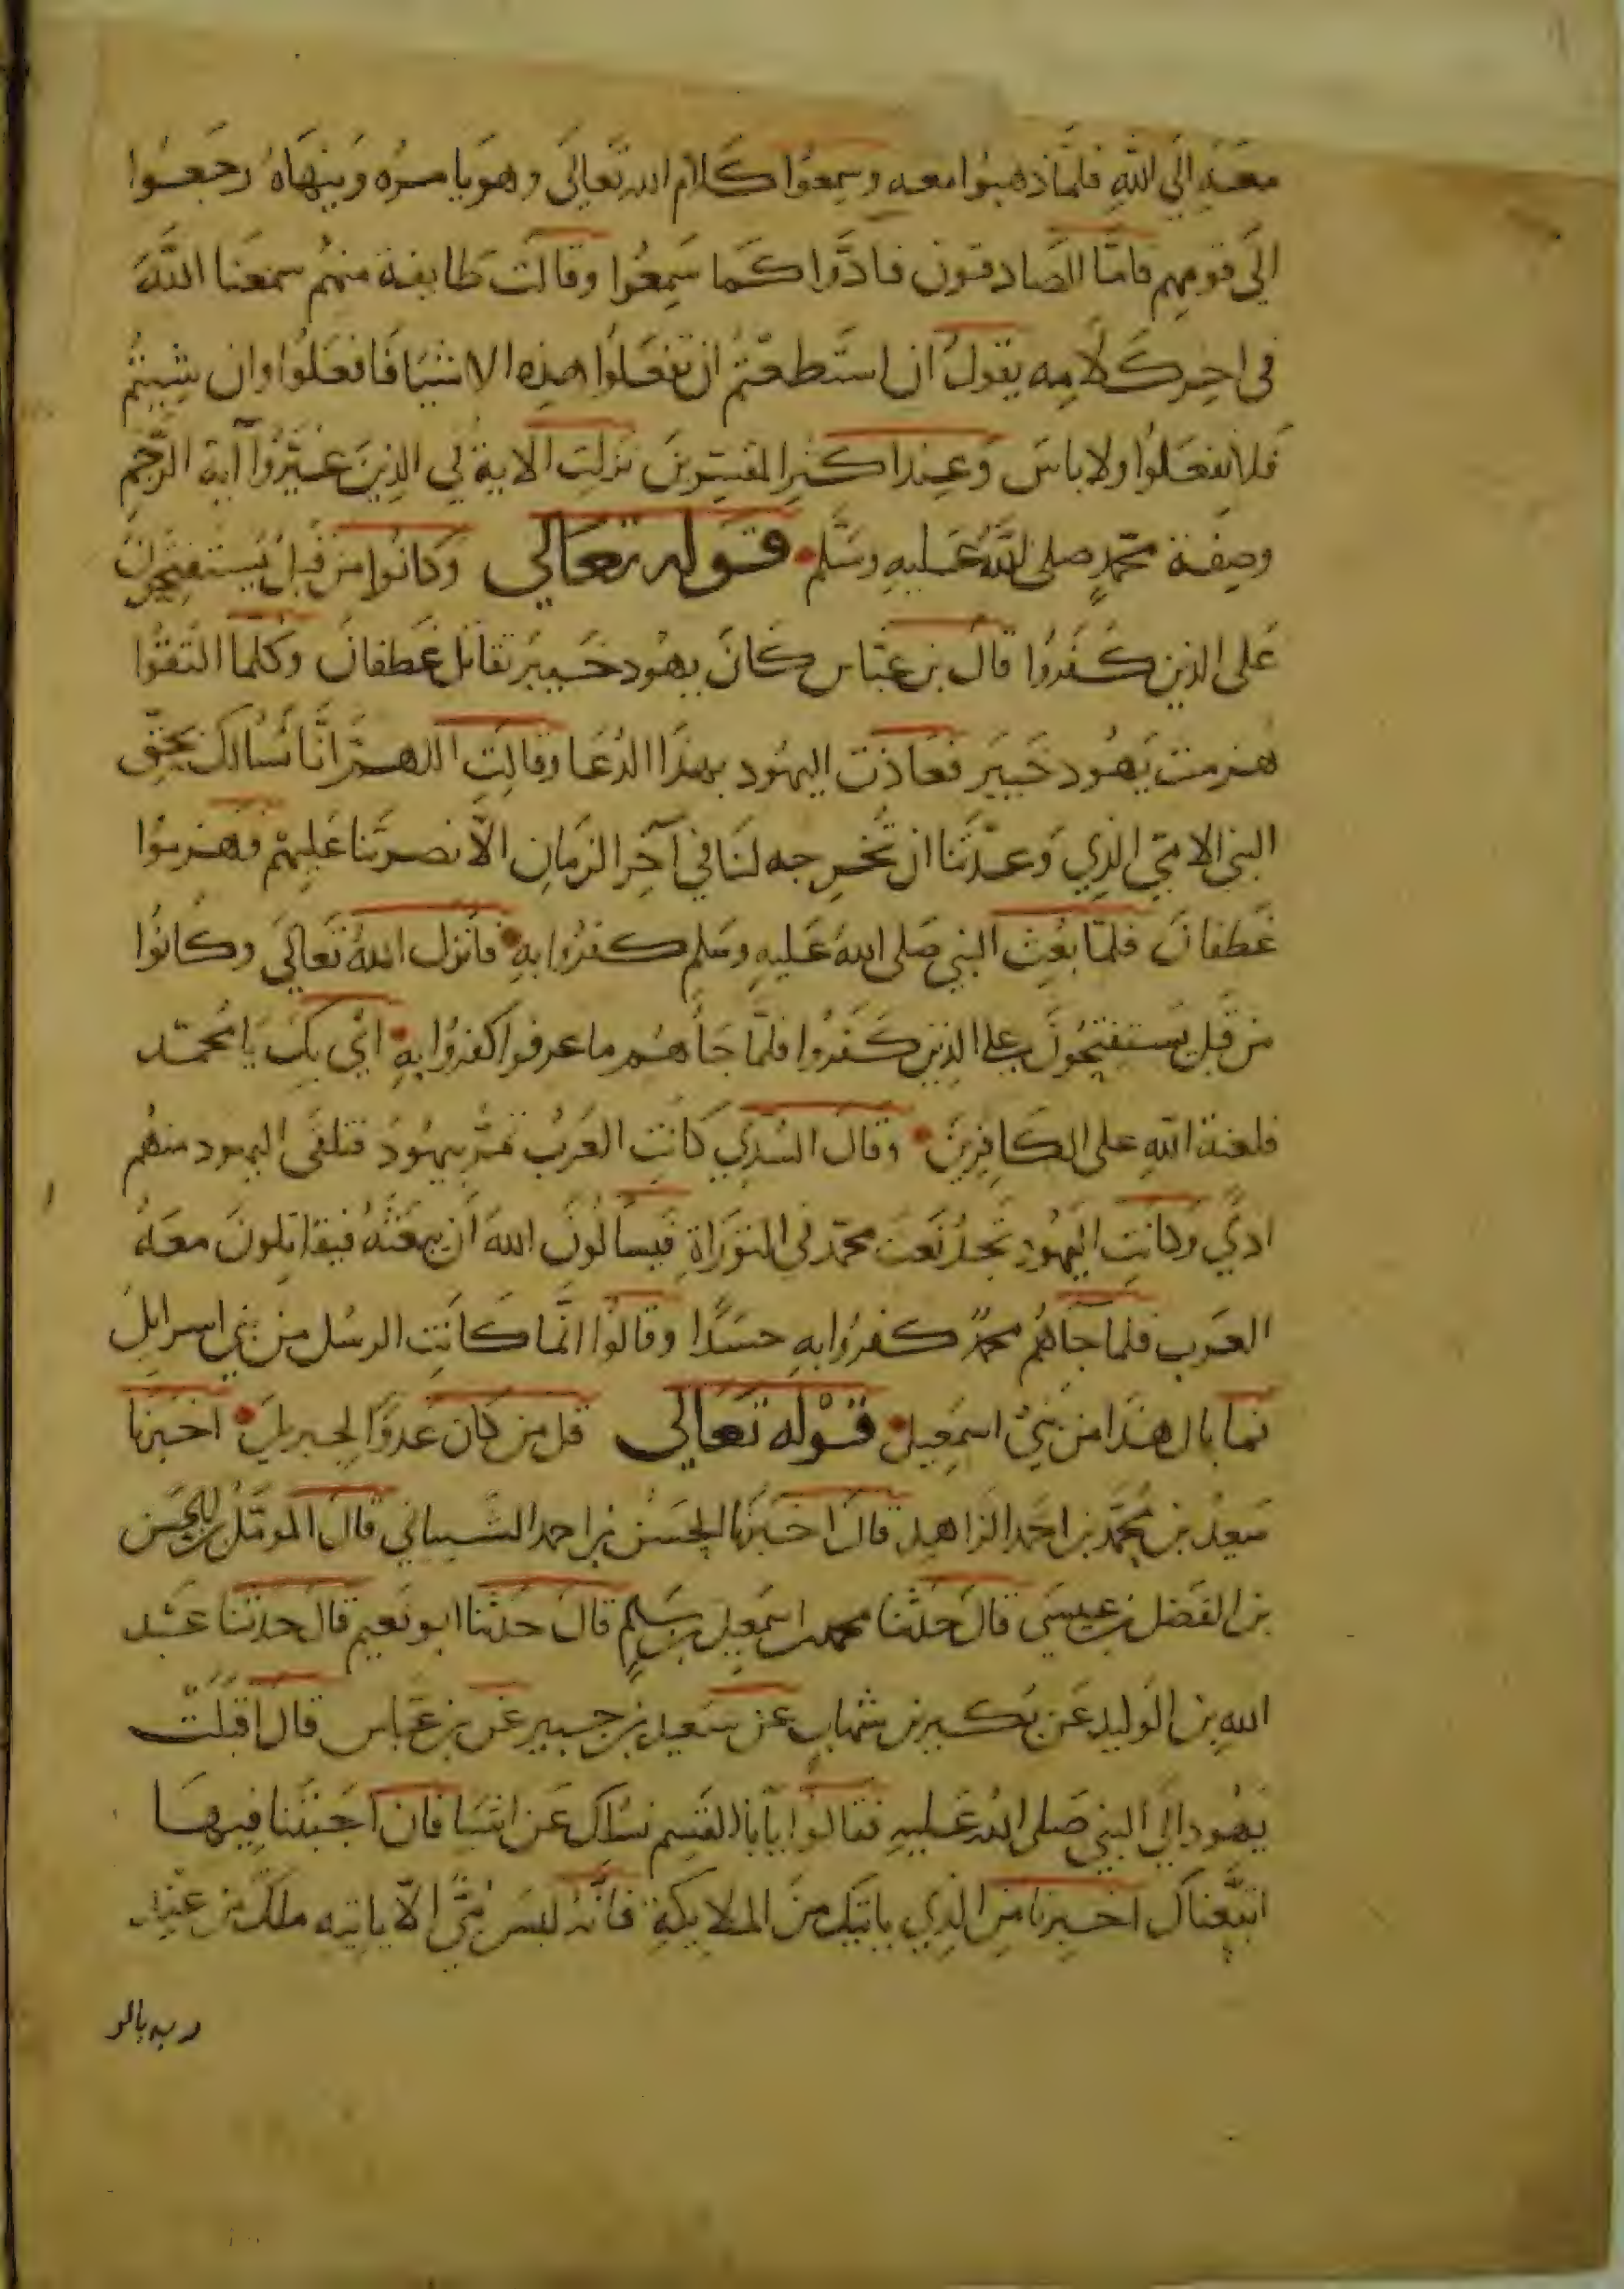 معه الى الله فلما ذهبوا معه وسمعوا كلام الله تعالى وهو يامره وينهاه رجعوا
الى قومهم فاما الصادقون فادوا كما سمعوا وقالت طايفة منهم سمعنا الله
فى اخر كلامه يقول ان استطعتم ان تفعلوا هذه الاشيا فافعلوا وان شيتم
فلا تفعلوا ولا باس وعند اكثر المفسرين نزلت الاية في الذين غيروا آية الرجم
وصفة محمد صلى الله عليه وسلم قوله تعالي وكانوا من قبل يستفتحون
على الذين كفروا قال بن عباس كان يهود خيبر تقاتل غطفان وكلما التقوا
هزمت يهود خيبر فعاذت اليهود بهذا الدعا وقالت اللهم انا نسالك بحق
النبى الامي الذي وعدتنا ان تخرجه لنا في آخر الزمان الا نصرتنا عليهم فهزموا
غطفان فلما بعث النبي صلى الله عليه وسلم كفروا به فانزل الله تعالى وكانوا
من قبل يستفتحون على الذين كفروا فلما جاهم ما عرفوا كفروا به اي بك يا محمد
فلعنة الله على الكافرين وقال السدي كانت العرب تمر بيهود فتلقى اليهود منهم
اذي وكانت اليهود تجد نعت محمد فى التوراة فيسالون الله ان يبعثه فيقاتلون معه
العرب فلما جاهم محمد كفروا به حسدا وقالوا انما كانت الرسل من بني اسرايل
فما بال هذا من بني اسمعيل قوله تعالي قل من كان عدوا لجبريل اخبرنا
سعيد بن محمد بن احمد الزاهد قال اخبرنا الحسن بن احمد الشيباني قال المومل بن الحسن
بن الفضل بن عيسى قال حدثنا محمد بن اسمعيل بن سلم قال حدثنا ابو نعيم قال حدثنا عبد
الله بن الوليد عن بكير بن شهاب عن سعيد بن جبير عن بن عباس قال اقبلت
يهود الى النبي صلى الله عليه فقالوا يا ابا القسم نسالك عن اشيا فان اجبتنا فيها
اتبعناك اخبرنا من الذي ياتيك من الملايكة فانه ليس نبى الا ياتيه ملك من عند
ربه بالر